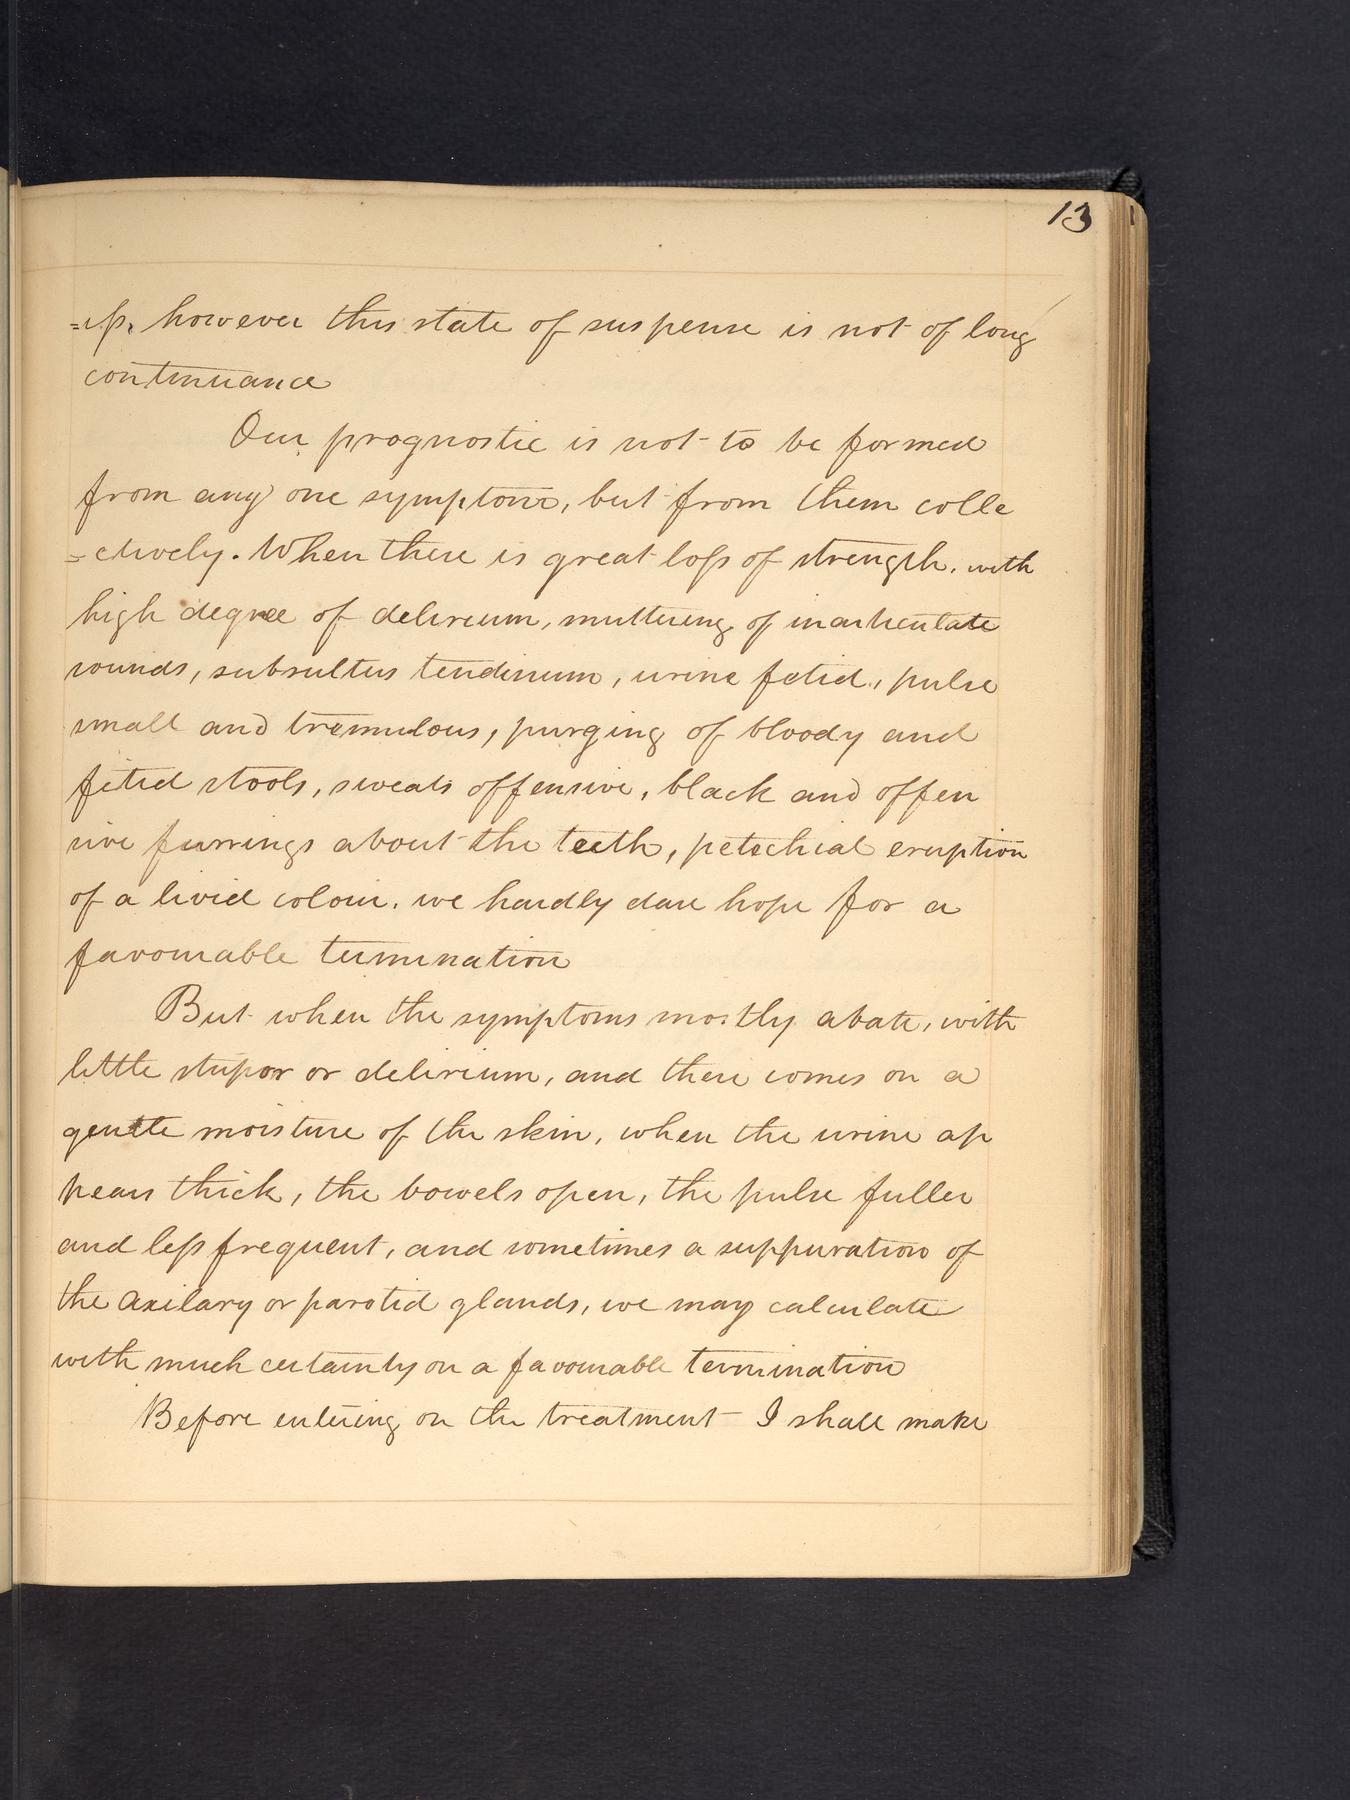 13
=ess, however this state of suspense is not of long
continuance
Our prognostic is not to be formed
from any one symptom, but from them colle
=ctively. When there is great loss of strength, with
high degree of delirium, muttering of inarticulate
sounds, subsultus tendinum, urine fetid, pulse
small and tremulous, purging of bloody and
fetid stools, sweats offensive, black and offen
sive furrings about the teeth, petechial eruption
of a livid colour. we hardly dare hope for a
favourable termination
But when the symptoms mostly abate, with
little stupor or delirium, and there comes on a
gentle moisture of the skin, when the urine ap
pears thick, the bowels open, the pulse fuller
and less frequent, and sometimes a suppuration of
the axilary or parotid glands, we may calculate
with much certainty on a favourable termination
Before entering on the treatment I shall make